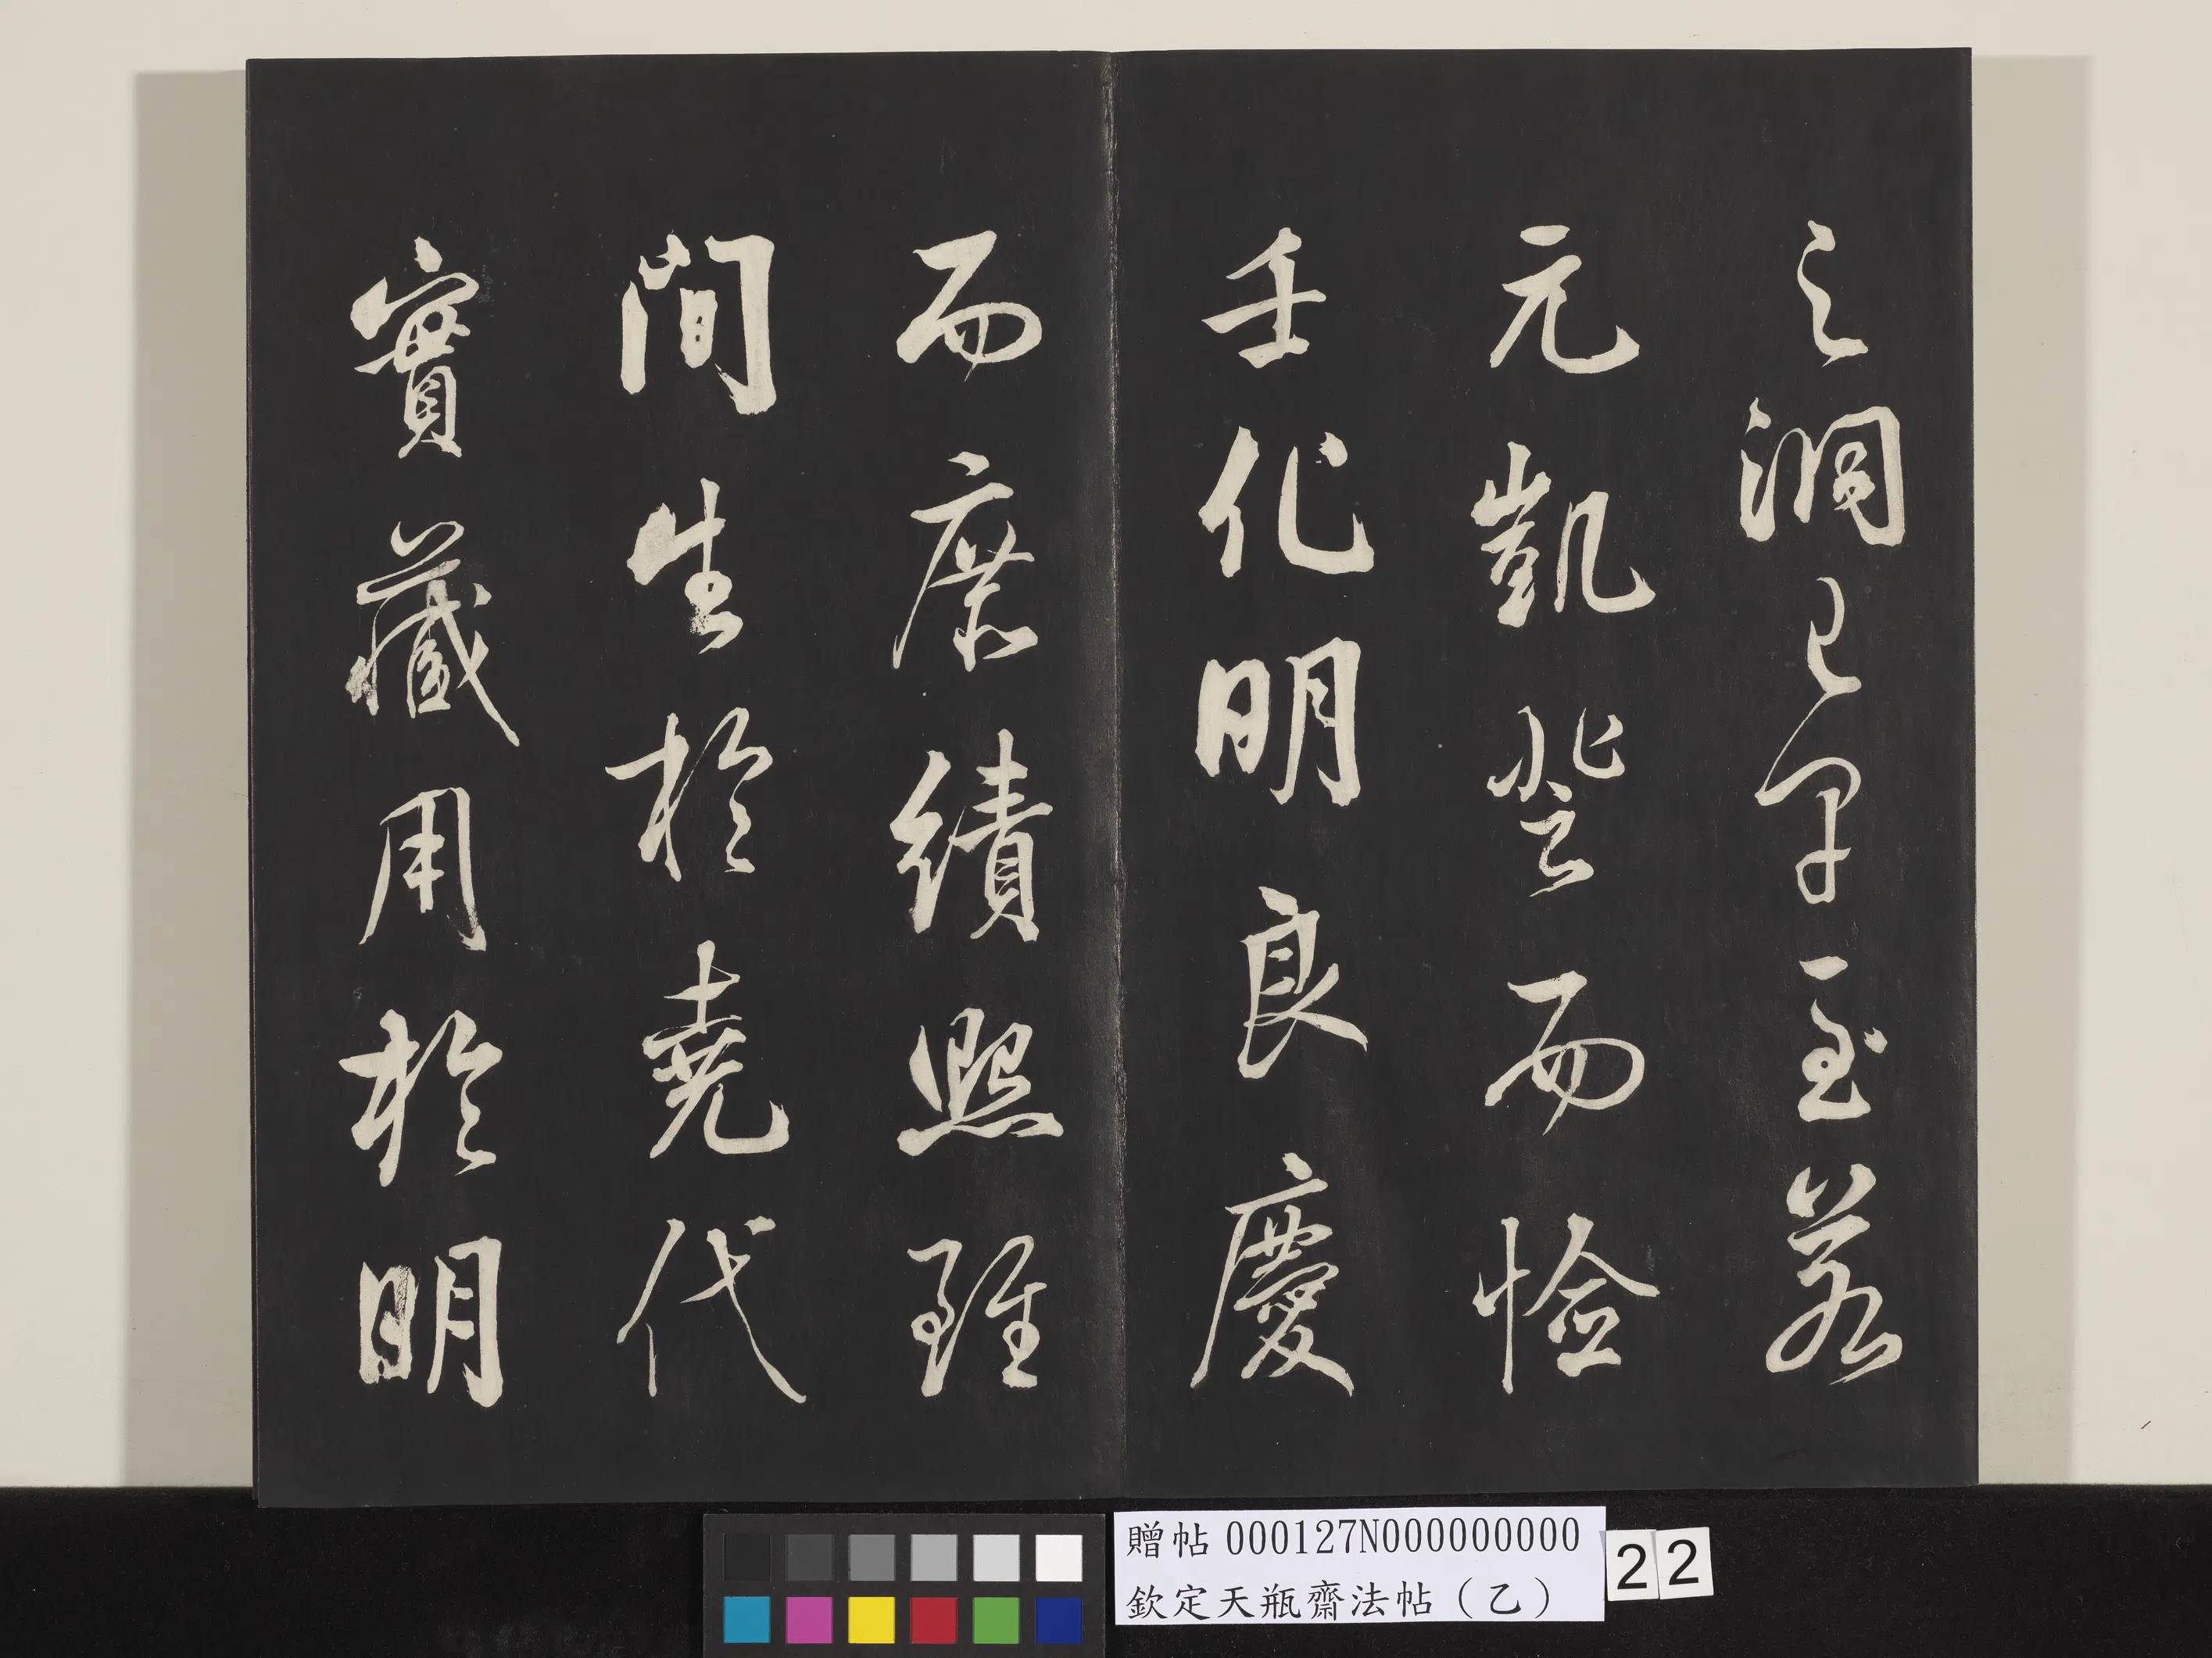 之凋已早至若
元凱登而憸
壬化明良慶
而庶績熙雖
間生於堯代
實藏用於明
贈帖 000127N000000000
欽定天瓶齋法帖（乙）
22